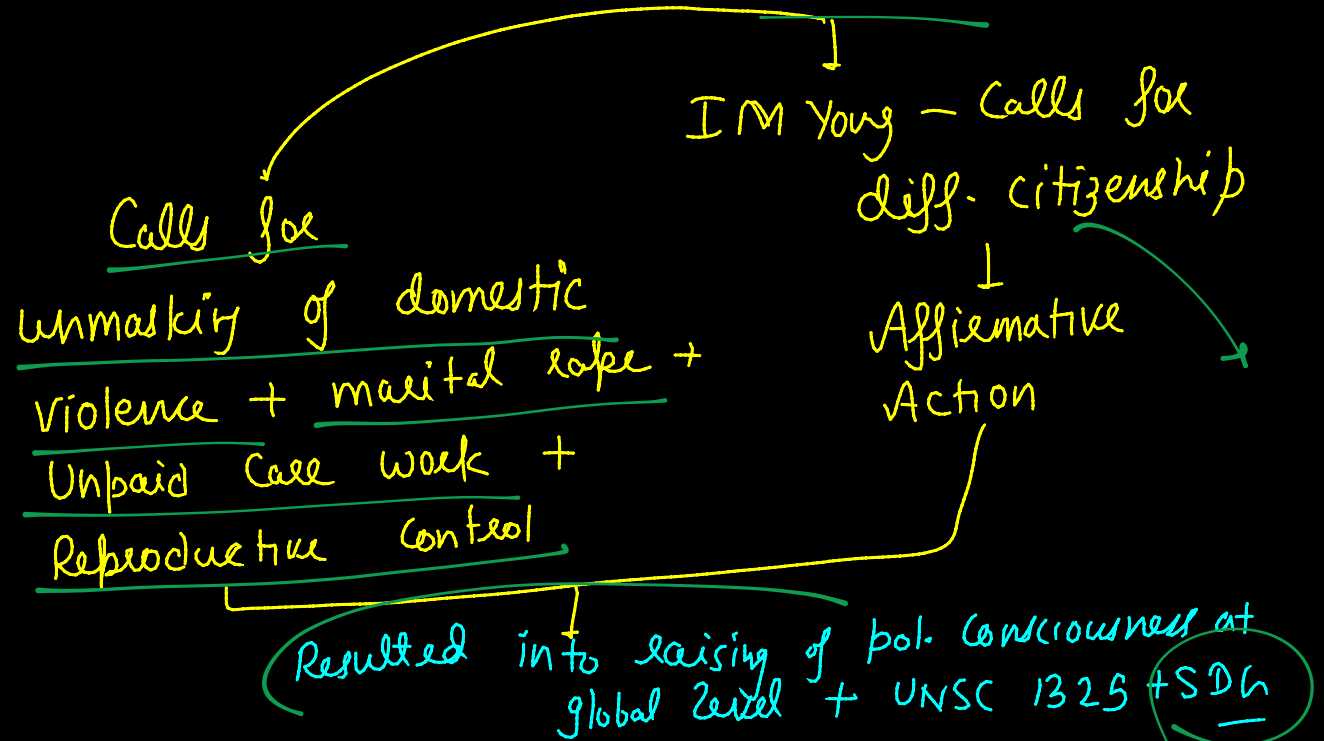 I M Young - Calls for
diff. citizenship
Affirmative
Action
Calls for
unmasking of domestic
violence + marital rape +
Unpaid Care work +
Reproductive control
Resulted into raising of pol. consciousness at
global level + UNSC 1325 + SDG